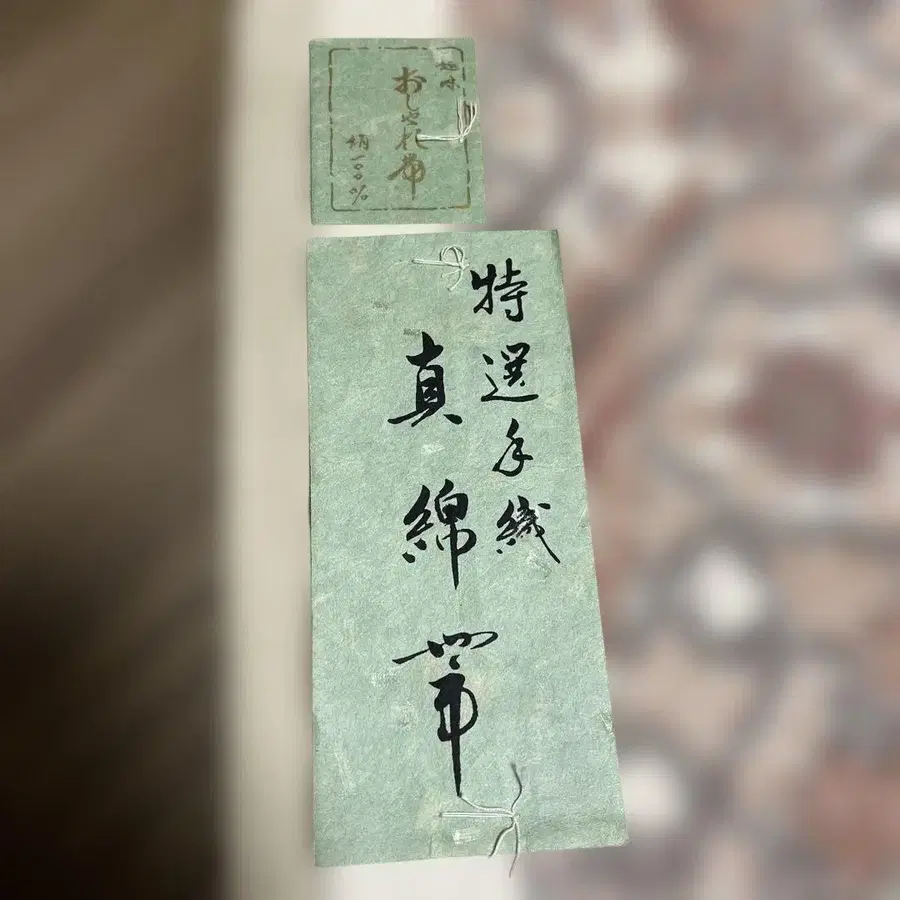 趣味
おしゃれ帯
絹一〇〇%
特選手織
真綿帯